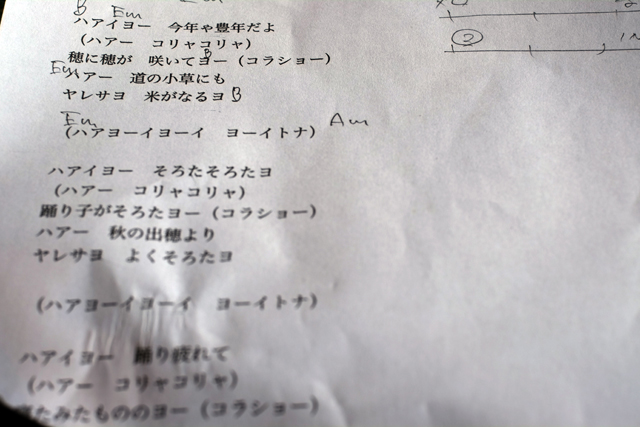 B Em
ハアイヨー 今年ゃ豊年だよ
(ハアー コリャコリャ)
穂に穂が 咲いてヨー (コラショー)
B
Em
ハアー 道の小草にも
ヤレサヨ 米がなるヨ B
Em
(ハアヨーイヨーイ ヨーイトナ) Am
ハアイヨー そろたそろたヨ
(ハアー コリャコリャ)
踊り子がそろたヨー (コラショー)
ハアー 秋の出穂より
ヤレサヨ よくそろたヨ
(ハアヨーイヨーイ ヨーイトナ)
ハアイヨー 踊り疲れて
(ハアー コリャコリャ)
たみたもののヨー (コラショー)
②